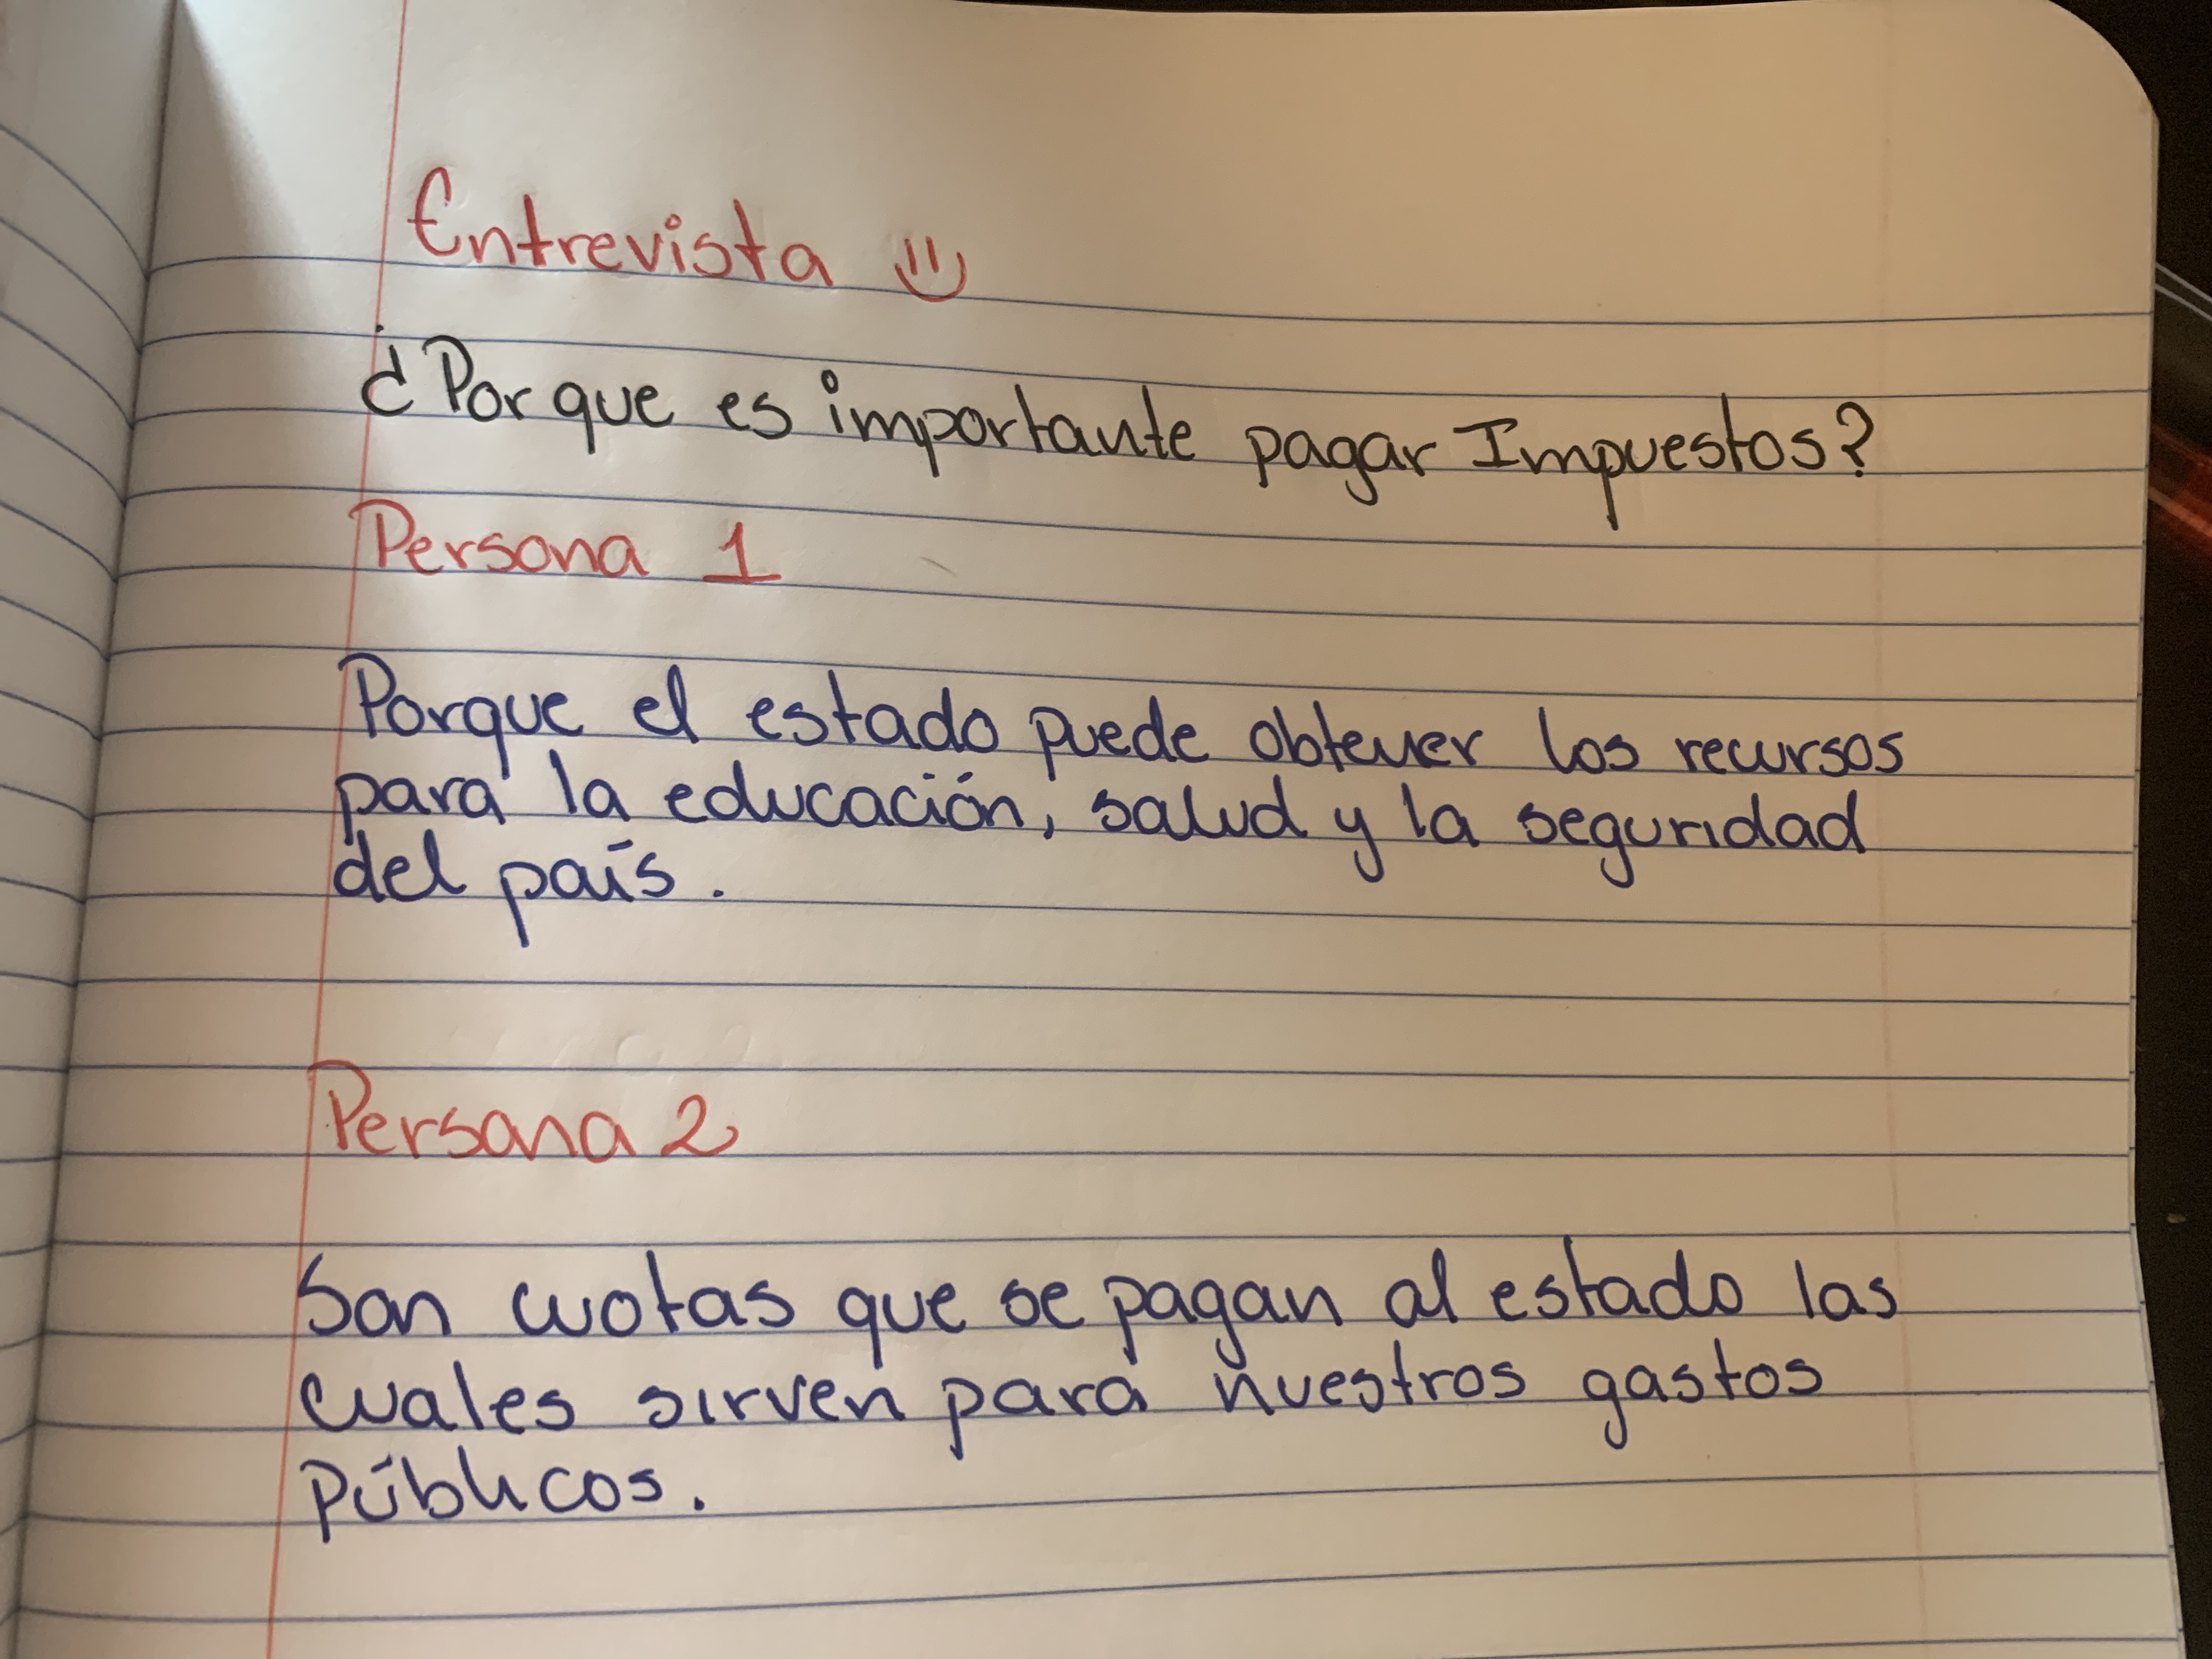 Entrevista
¿Por que es importante pagar Impuestos?
Persona 1
Porque el estado puede obtener los recursos
para la educación, salud y la seguridad
del país.
Persona 2
Son cuotas que se pagan al estado las
cuales sirven para nuestros gastos
Públicos.